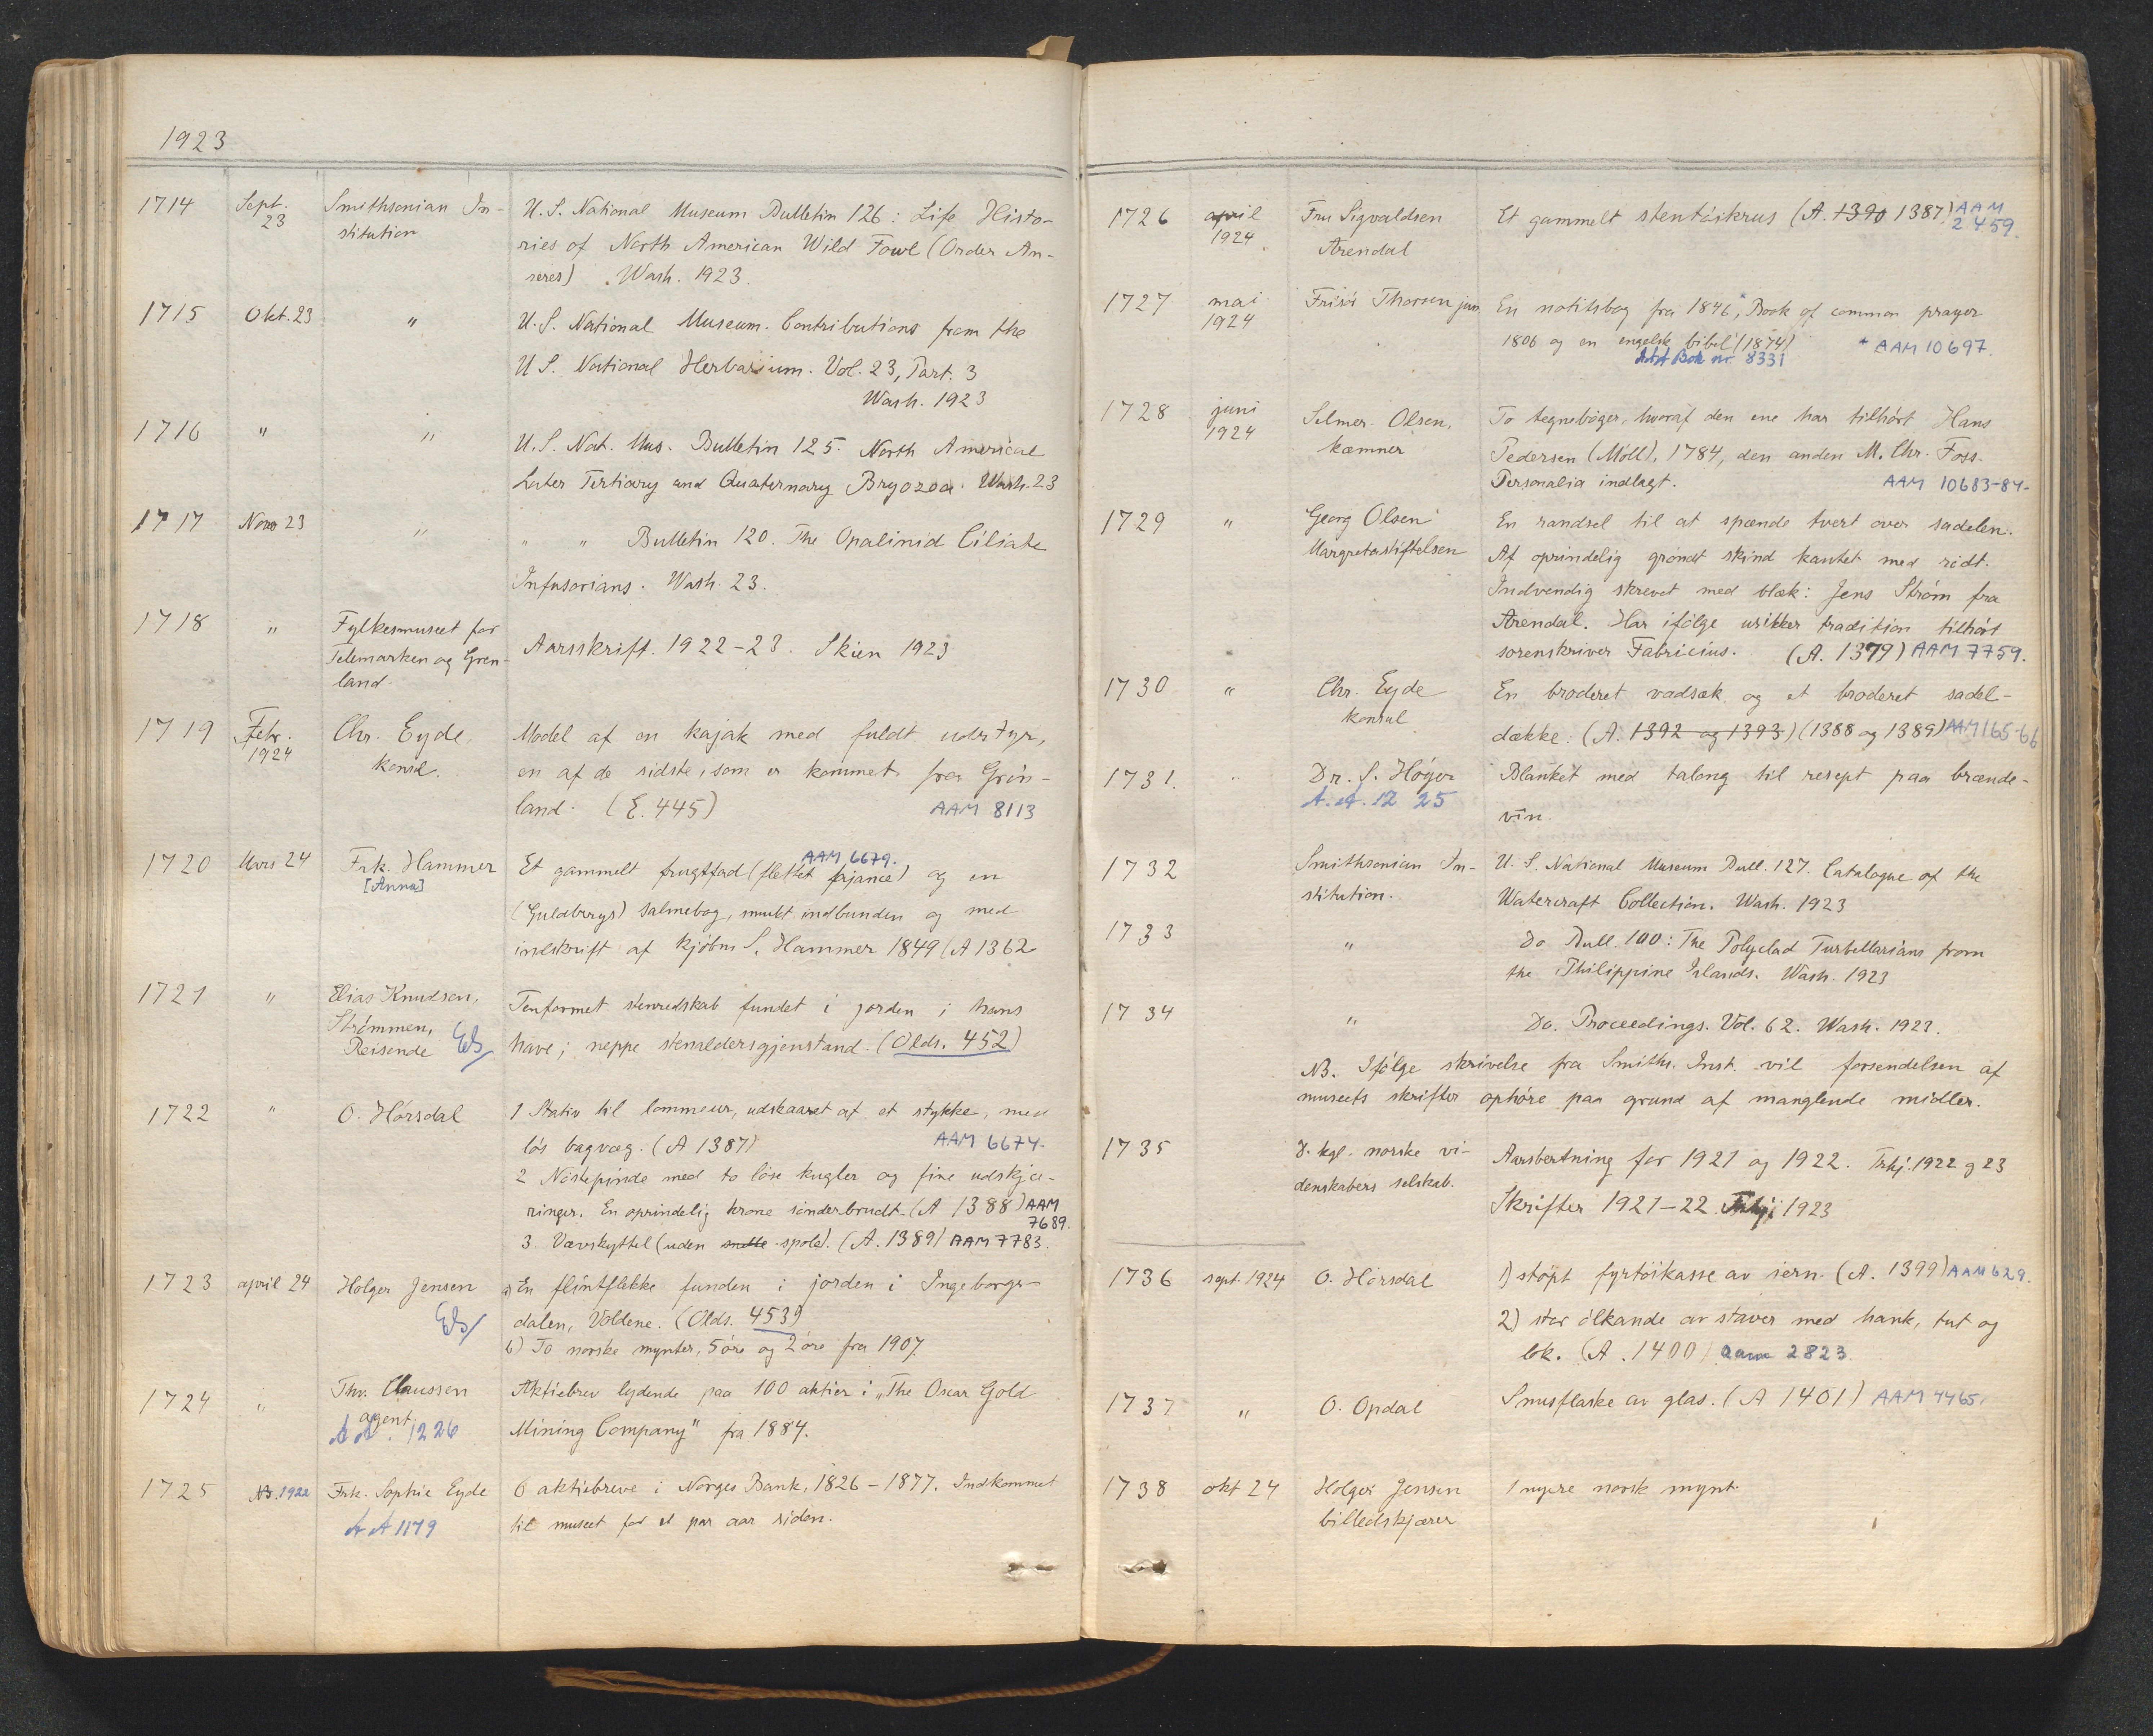 1923
1714 Sept. 23 Smithsonian In- U.S. National Museum Bulletin 126: Life Histo-
stitution ries of North American Wild Fowl (Order An-
seres) Wash. 1923.
1715 Okt. 23 " U.S. National Museum. Contributions from the
U.S. National Herbarium. Vol. 23, Part. 3
Wash. 1923
1716 " " U.S. Nat. Mus. Bulletin 125. North American
Later Tertiary and Quaternary Bryozoa. Wash. 23
1717 Nov 23 " " " Bulletin 120. The Opalinid Ciliate
Infusorians. Wash. 23.
1718 " Fylkesmuseet for
Telemarken og Gren- Aarsskrift. 1922-23. Skien 1923
land.
1719 Febr. 1924 Chr. Eyde, Model af en kajak med fuldt udstyr,
konsul. en af de sidste, som er kommet fra Grön-
land. (E. 445) AAM 8113
1720 Mars 24 Frk. Hammer Et gammelt frugtfad (flettet fajance) og en
AAM 6679.
[Anna] (Guldbergs) salmebog, smukt indbunden og med
indskrift af kjöbm S. Hammer 1849 (A 1362
1721 " Elias Knudsen, Tenformet stenredskab fundet i jorden i hans
Strömmen,
Reisende Eb have; neppe stenaldersgjenstand. (Olds. 452)
1722 " O. Hörsdal 1 Stativ til lommeur, udskaaret af et stykke, med
lös bagvæg. (A 1387) AAM 6674.
2 Nöstepinde med to löse kugler og fine udskjæ-
ringer. En oprindelig krone sönderbrudt. (A 1388) AAM 7689.
3. Vævskyttel (uden snelle spole). (A. 1389) AAM 7783.
1723 april 24 Holger Jensen a) En flintflekke funden i jorden i Ingeborgs-
Eb dalen, Voldene. (Olds. 453)
b) To norske mynter, 5 öre og 2 öre fra 1907.
1724 " Thv. Claussen Aktiebrev lydende paa 100 aktier i „The Oscar Gold
agent.
AA. 1226 Mining Company" fra 1884.
1725 NB. 1922 Frk. Sophie Eyde 6 aktiebreve i Norges Bank, 1826-1877. Indkommet
AA 1179 til museet for et par aar siden.
1726 april 1924 Fru Sigvaldsen Et gammelt stentöiskrus (A. 1390 1387) AAM 2459.
Arendal
1727 mai 1924 Frisör Thorsen jun. En notitsbog fra 1846,* Book of common prayer
1806 og en engelsk bibel (1874) * AAM 10697.
AA Bok nr 8331
1728 juni 1924 Selmer Olsen, To tegneböger, hvoraf den ene har tilhört Hans
kæmner Pedersen (Möll), 1784, den anden M. Chr. Foss.
Personalia indlagt. AAM 10683-84.
1729 " Georg Olsen En randsel til at spænde tvert over sadelen.
Margretestiftelsen Af oprindelig grönt skind kantet med rödt.
Indvendig skrevet med blæk: Jens Ström fra
Arendal. Har ifölge usikker tradition tilhört
sorenskriver Fabricius. (A. 1379) AAM 7759.
1730 " Chr. Eyde En broderet vadsæk og et broderet sadel-
konsul dække: (A. 1392 og 1393) (1388 og 1389) AAM 165-66
1731. " Dr. S. Höyer Blanket med talong til resept paa brænde-
A.A. 12 25 vin.
1732 Smithsonian In- U.S. National Museum Bull. 127. Catalogue of the
stitution. Watercraft Collection. Wash. 1923
1733 " Do Bull. 100: The Polyclad Turbellarians from
the Philippine Islands. Wash. 1923
1734 " Do. Proceedings. Vol. 62. Wash. 1923.
NB. Ifölge skrivelse fra Smiths. Inst. vil forsendelsen af
museets skrifter ophöre paa grund af manglende midler.
1735 D. kgl. norske vi- Aarsberetning for 1921 og 1922. Trhj. 1922 og 23
denskabers selskab. Skrifter 1921-22. Trhj. 1923
1736 sept. 1924 O. Hörsdal 1) stöpt fyrtöikasse av jern. (A. 1399) AAM 629.
2) stor ölkande av staver med hank, tut og
lok. (A. 1400) aam 2823.
1737 " O. Opdal Snusflaske av glas. (A 1401) AAM 4465.
1738 okt 24 Holger Jensen 1 nyere norsk mynt.
billedskjærer